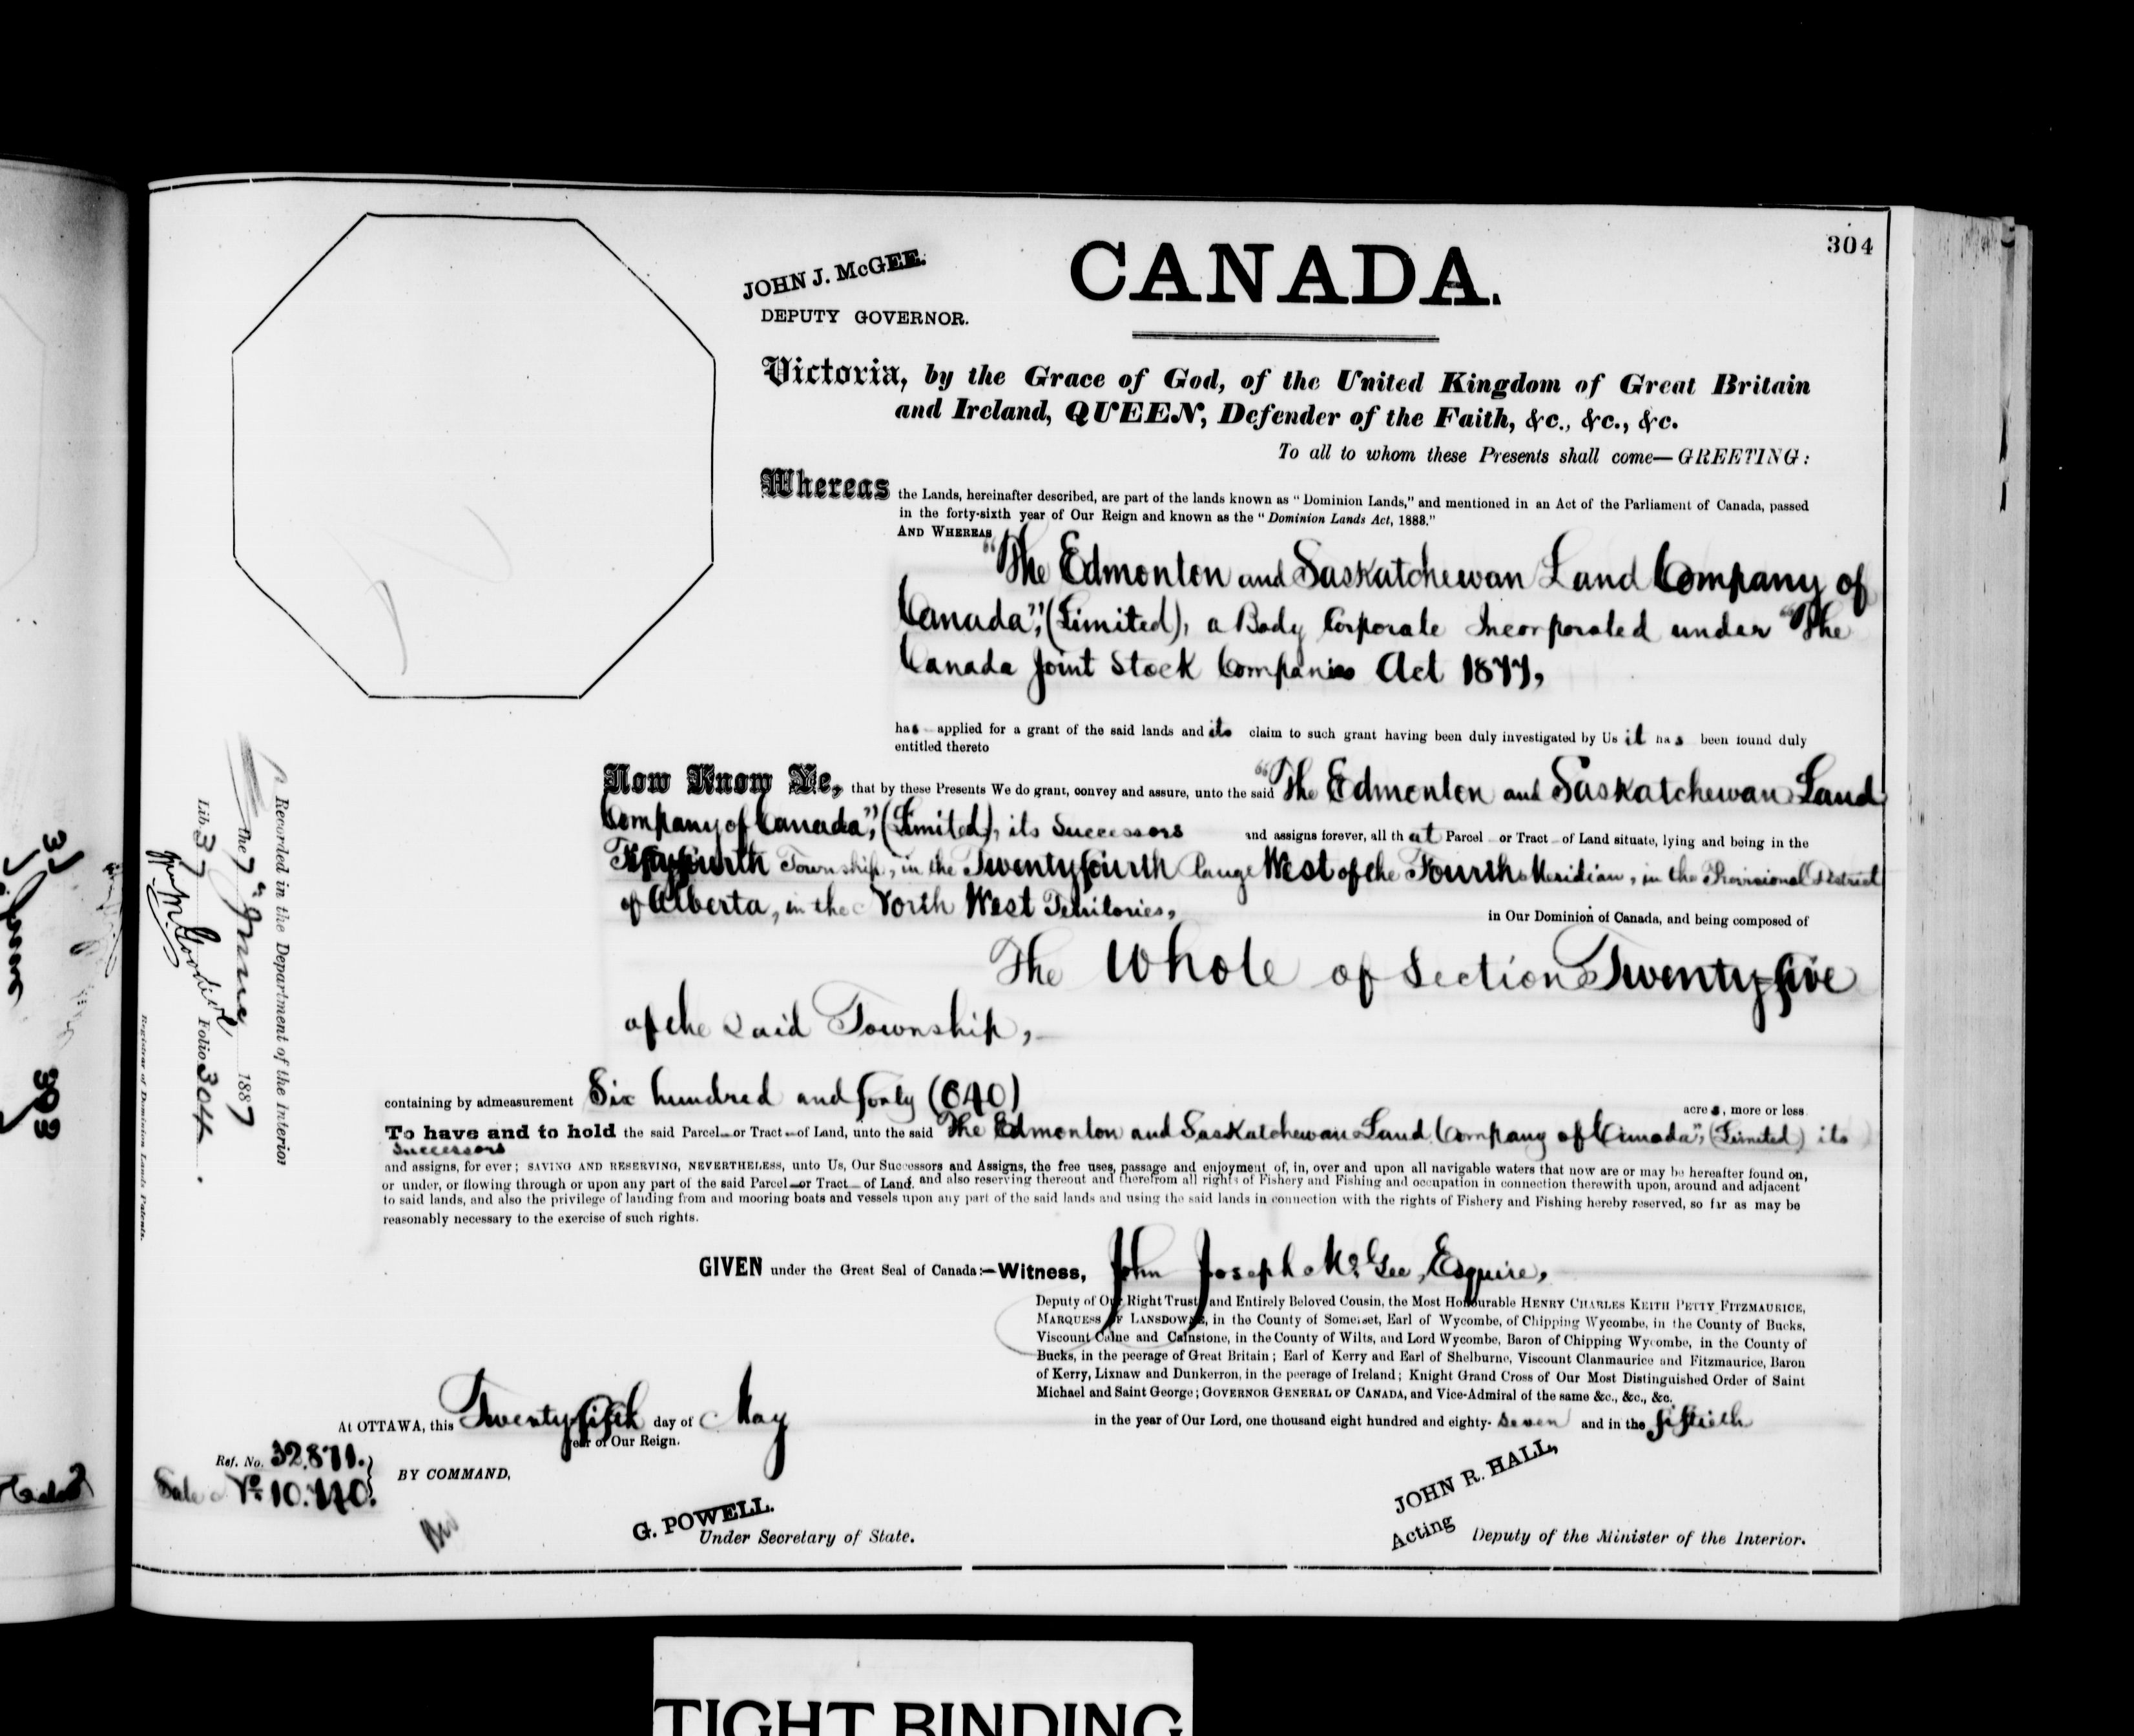 304
JOHN J. McGEE.
DEPUTY GOVERNOR.
CANADA.
Victoria, by the Grace of God, of the United Kingdom of Great Britain
and Ireland, QUEEN, Defender of the Faith, &c., &c., &c.
To all to whom these Presents shall come—GREETING:
Whereas the Lands, hereinafter described, are part of the lands known as "Dominion Lands," and mentioned in an Act of the Parliament of Canada, passed
in the forty-sixth year of Our Reign and known as the "Dominion Lands Act, 1883."
AND WHEREAS
"The Edmonton and Saskatchewan Land Company of
Canada", (Limited), a Body Corporate Incorporated under "The
Canada Joint Stock Companies Act 1877,
has applied for a grant of the said lands and its claim to such grant having been duly investigated by Us it has been found duly
entitled thereto
Now Know Ye, that by these Presents We do grant, convey and assure, unto the said "The Edmonton and Saskatchewan Land
Company of Canada", (Limited), its Successors and assigns forever, all that Parcel or Tract of Land situate, lying and being in the
Fiftyfourth Township, in the Twentyfourth Range West of the Fourth Meridian, in the Provisional District
of Alberta, in the North West Territories, in Our Dominion of Canada, and being composed of
The Whole of Section Twenty-five
of the said Township,
containing by admeasurement Six hundred and forty (640) acres, more or less.
To have and to hold the said Parcel or Tract of Land, unto the said "The Edmonton and Saskatchewan Land Company of Canada", (Limited) its
Successors
and assigns, for ever; SAVING AND RESERVING, NEVERTHELESS, unto Us, Our Successors and Assigns, the free uses, passage and enjoyment of, in, over and upon all navigable waters that now are or may be hereafter found on,
or under, or flowing through or upon any part of the said Parcel or Tract of Land. and also reserving thereout and therefrom all rights of Fishery and Fishing and occupation in connection therewith upon, around and adjacent
to said lands, and also the privilege of landing from and mooring boats and vessels upon any part of the said lands and using the said lands in connection with the rights of Fishery and Fishing hereby reserved, so far as may be
reasonably necessary to the exercise of such rights.
GIVEN under the Great Seal of Canada:—Witness, John Joseph McGee, Esquire,
Deputy of Our Right Trusty and Entirely Beloved Cousin, the Most Honourable HENRY CHARLES KEITH PETTY FITZMAURICE,
MARQUESS OF LANSDOWNE, in the County of Somerset, Earl of Wycombe, of Chipping Wycombe, in the County of Bucks,
Viscount Calne and Calnstone, in the County of Wilts, and Lord Wycombe, Baron of Chipping Wycombe, in the County of
Bucks, in the peerage of Great Britain; Earl of Kerry and Earl of Shelburne, Viscount Clanmaurice and Fitzmaurice, Baron
of Kerry, Lixnaw and Dunkerron, in the peerage of Ireland; Knight Grand Cross of Our Most Distinguished Order of Saint
Michael and Saint George; GOVERNOR GENERAL OF CANADA, and Vice-Admiral of the same &c., &c., &c.
At OTTAWA, this Twentyfifth day of May in the year of Our Lord, one thousand eight hundred and eighty-seven and in the fiftieth
year of Our Reign.
Ref. No. 32,871.
Sale No. 10.770.
BY COMMAND,
G. POWELL.
Under Secretary of State.
JOHN R. HALL,
Acting Deputy of the Minister of the Interior.
Recorded in the Department of the Interior
the 7" June 1887
Lib 37 Folio 304.
Registrar of Dominion Lands Patents.
303
TIGHT BINDING